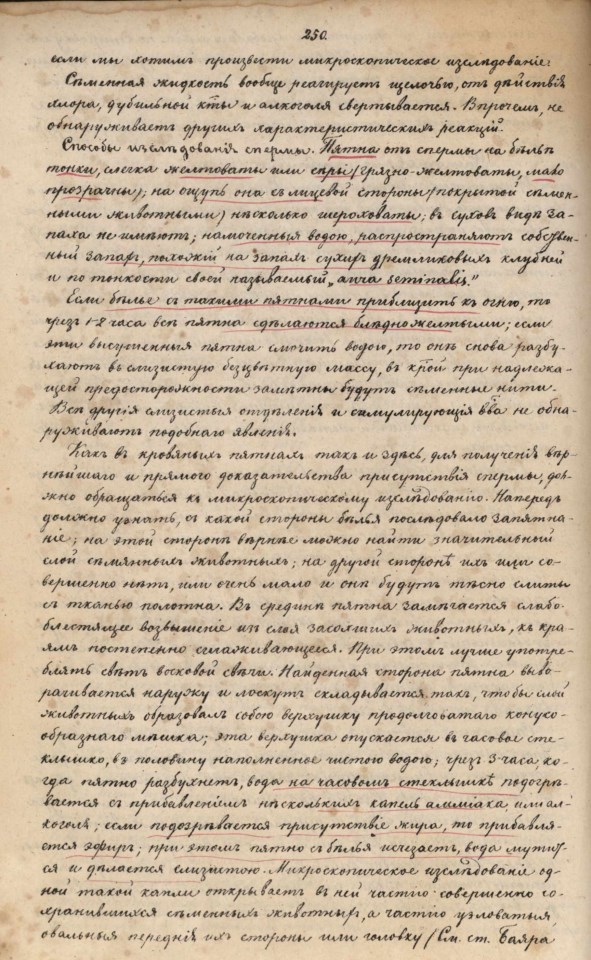 250.
если мы хотимъ произвести микроскопическое изслѣдованіе:
Сѣменная жидкость вообще реагируетъ щелочью, отъ дѣйствія
хлора, дубильной кты и алкоголя свертывается. Впрочемъ, не
обнаруживаетъ другихъ характеристическихъ реакцій.
Способы изслѣдованія спермы. Пятна отъ спермы на бѣльѣ
тонки, слегка желтоваты или сѣры (грязно-желтоваты, мало
прозрачны); на ощупь она съ лицевой стороны (покрытой сѣмен-
ными животными) нѣсколько шероховаты; въ сухомъ видѣ за-
паха не имѣютъ; намоченныя водою, распространяютъ собствен-
ный запахъ, похожій на запахъ сухихъ клубней
и по тонкости своей называемый „aura seminalis."
Если бѣлье съ такими пятнами приблизить къ огню, то
чрезъ 1-2 часа всѣ пятна сдѣлаются блѣдножелтыми; если
эти высушенныя пятна смочить водою, то онѣ снова разбу-
хаютъ въ слизистую безцвѣтную массу, въ кѣой при надлежа-
щей предосторожности замѣтны будутъ сѣменныя нити.
Всѣ другія слизистыя отдѣленія и симулирующія вва не обна-
руживаютъ подобнаго явленія.
Какъ въ кровяныхъ пятнахъ такъ и здѣсь, для полученія вѣр-
нѣйшаго и прямого доказательства присутствія спермы, дол-
жно обращаться къ микроскопическому изслѣдованію. Напередъ
должно узнать, съ какой стороны бѣлья послѣдовало запятна-
ніе; на этой сторонѣ вѣрнѣе можно найти значительный
слой сѣмянныхъ животныхъ; на другой сторонѣ ихъ или со-
вершенно нѣтъ, или очень мало и онѣ будутъ тѣсно слиты
съ тканью полотна. Въ срединѣ пятна замѣчается слабо-
блестящее возвышеніе изъ слоя засохшихъ животныхъ, къ кра-
ямъ постепенно сглаживающееся. При этомъ лучше употре-
блять свѣтъ восковой свѣчи. Найденная сторона пятна выво-
рачивается наружу и лоскутъ складывается такъ, чтобы слой
животныхъ образовалъ собою верхушку продолговатаго конусо-
образнаго мѣшка; эта верхушка опускается въ часовое сте-
клышко, въ половину наполненное чистою водою; чрезъ 3 часа, ко-
гда пятно разбухнетъ, вода на часовомъ стеклышкѣ подогрѣ-
вается съ прибавленіемъ нѣсколькихъ капель амміака, или ал-
коголя; если подозрѣвается присутствіе жира, то прибавля-
ется эфиръ; при этомъ пятно съ бѣлья исчезаетъ, вода мутит-
ся и дѣлается слизистою. Микроскопическое изслѣдованіе од-
ной такой капли открываетъ въ ней частію совершенно со-
хранившихся сѣменныхъ животныхъ, а частію узловатыя,
овальныя переднія ихъ стороны или головку (См. ст. Баяра